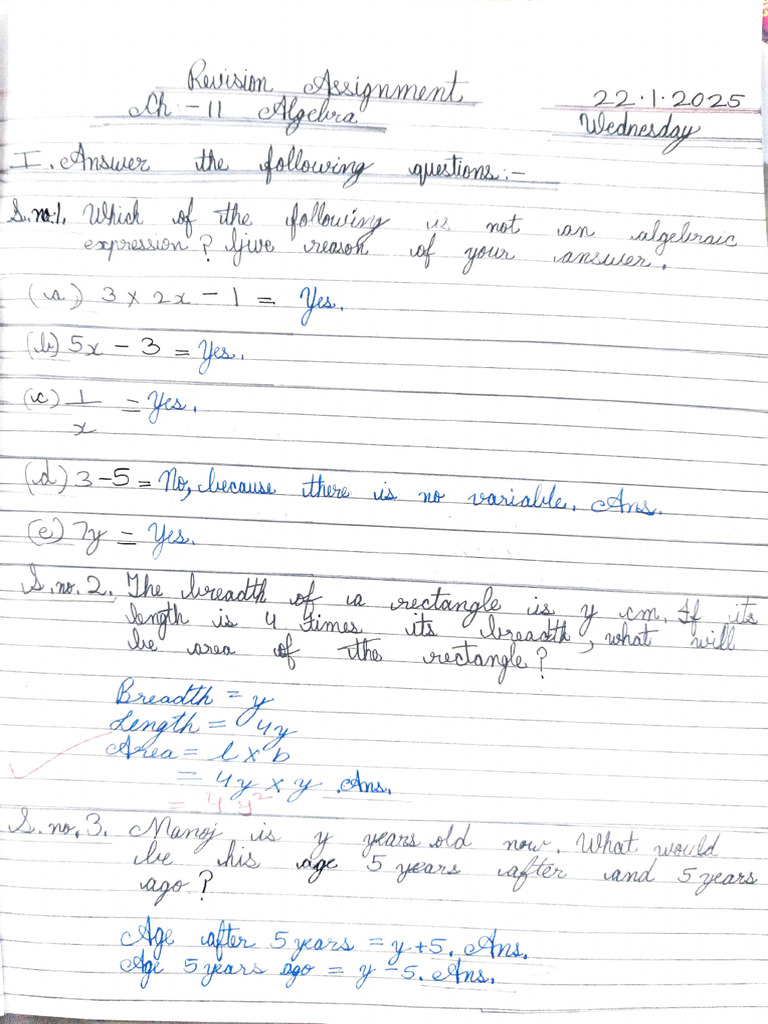 Revision Assignment
Ch:-11 Algebra
22.1.2025
Wednesday
I. Answer the following questions:-
S.no.1. Which of the following is not an algebraic
expression? Give reason of your answer.
(a) 3 × 2x - 1 = Yes.
(b) 5x - 3 = Yes.
(c) 1/x = Yes.
(d) 3-5 = No, because there is no variable. Ans.
(e) 7y = Yes.
S.no. 2. The breadth of a rectangle is y cm. If its
length is 4 times its breadth, what will
be area of the rectangle?
Breadth = y
Length = 4y
Area = l × b
= 4y × y Ans.
= 4y²
S.no. 3. Manoj is y years old now. What would
be his age 5 years after and 5 years
ago?
Age after 5 years = y+5. Ans.
Age 5 years ago = y-5. Ans.